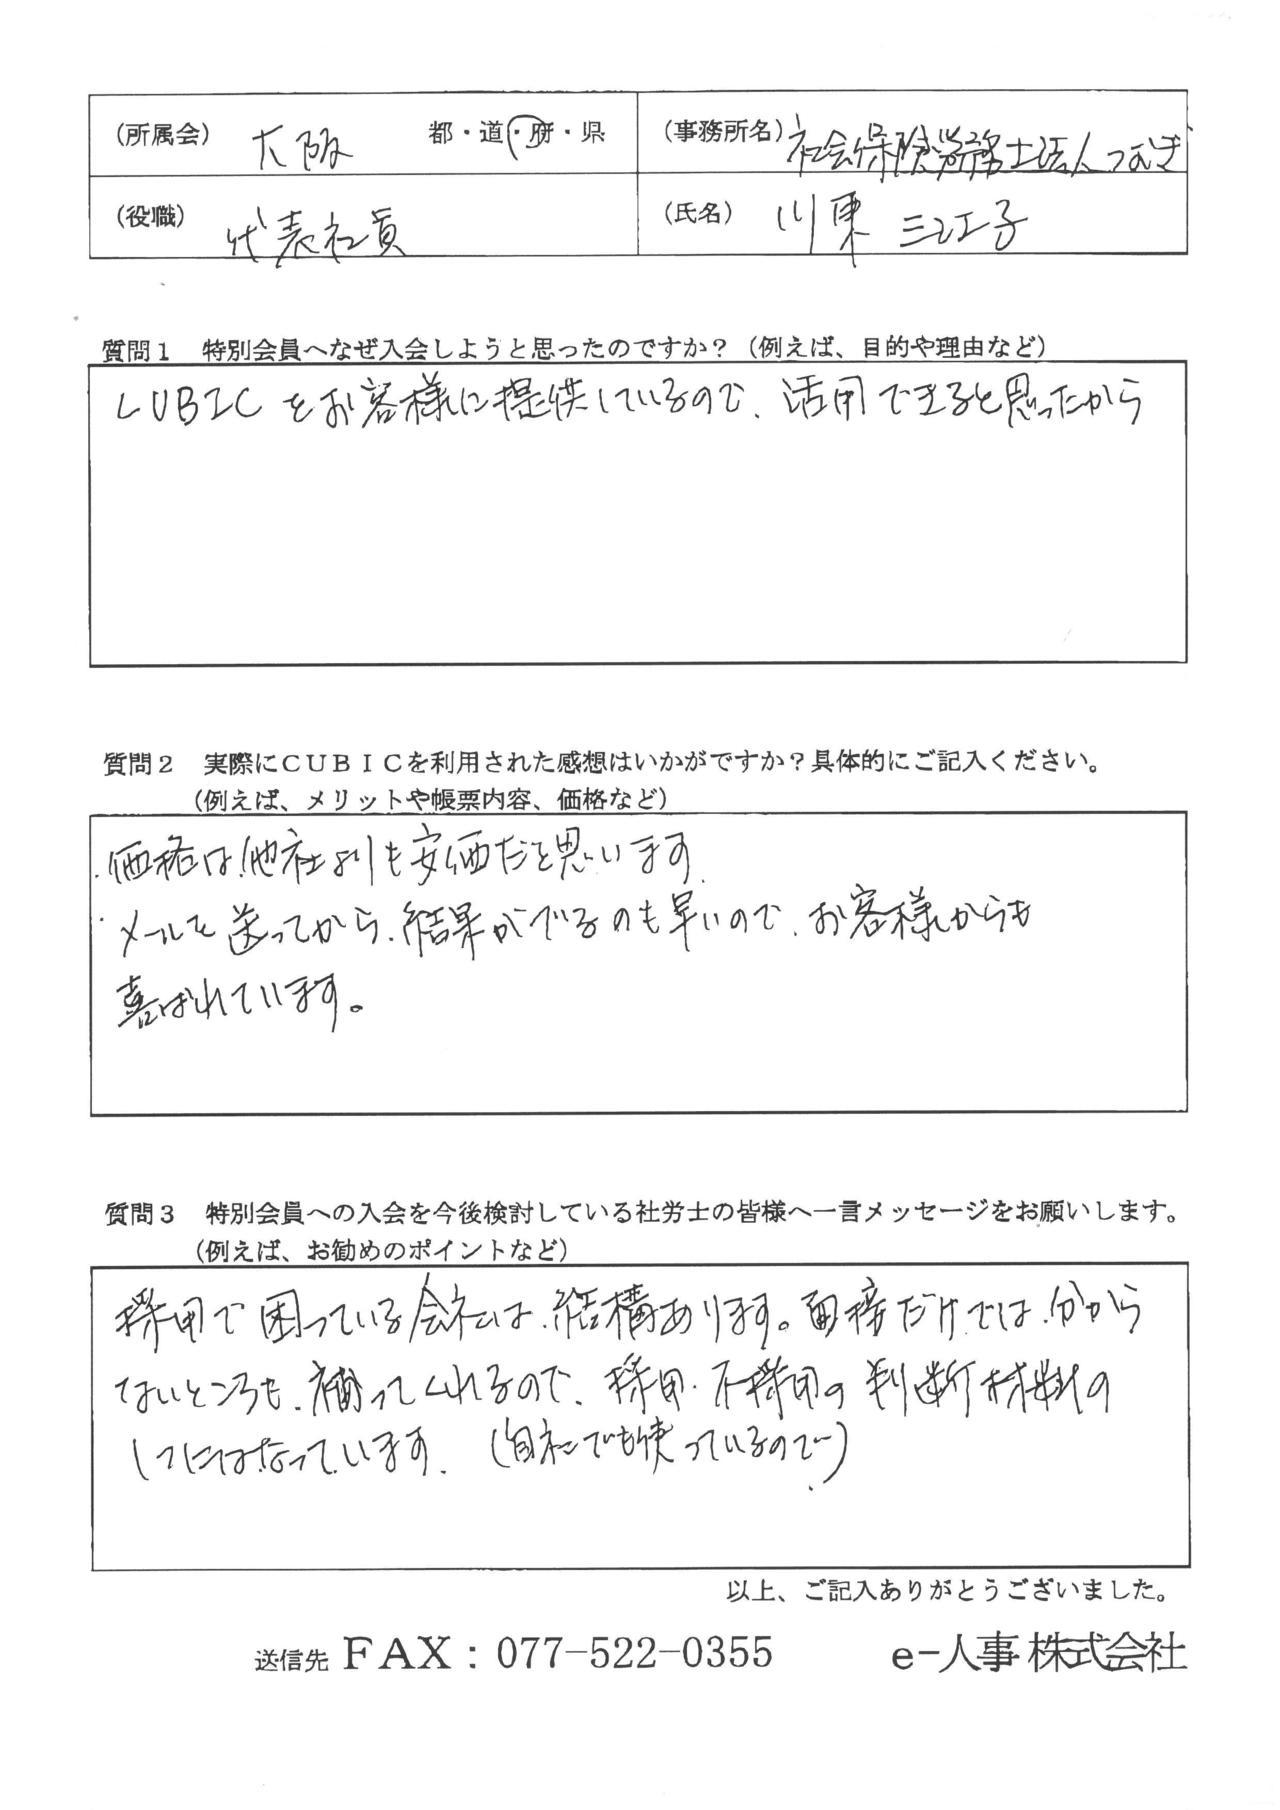 （所属会） 大阪 都・道・府・県 （事務所名） 社会保険労務士法人つむぎ
（役職） 代表社員 （氏名） 川東 三江子
質問１　特別会員へなぜ入会しようと思ったのですか？（例えば、目的や理由など）
CUBICをお客様に提供しているので、活用できると思ったから
質問２　実際にＣＵＢＩＣを利用された感想はいかがですか？具体的にご記入ください。
（例えば、メリットや帳票内容、価格など）
・価格は、他社よりも安価だと思います。
・メールを送ってから、結果がでるのも早いので、お客様からも
喜ばれています。
質問３　特別会員への入会を今後検討している社労士の皆様へ一言メッセージをお願いします。
（例えば、お勧めのポイントなど）
採用で困っている会社は、結構あります。面接だけでは、分から
ないところも、補ってくれるので、採用・不採用の判断材料の
1つにはなっています。（自社でも使っているので）
以上、ご記入ありがとうございました。
送信先 ＦＡＸ：077-522-0355 e-人事 株式会社